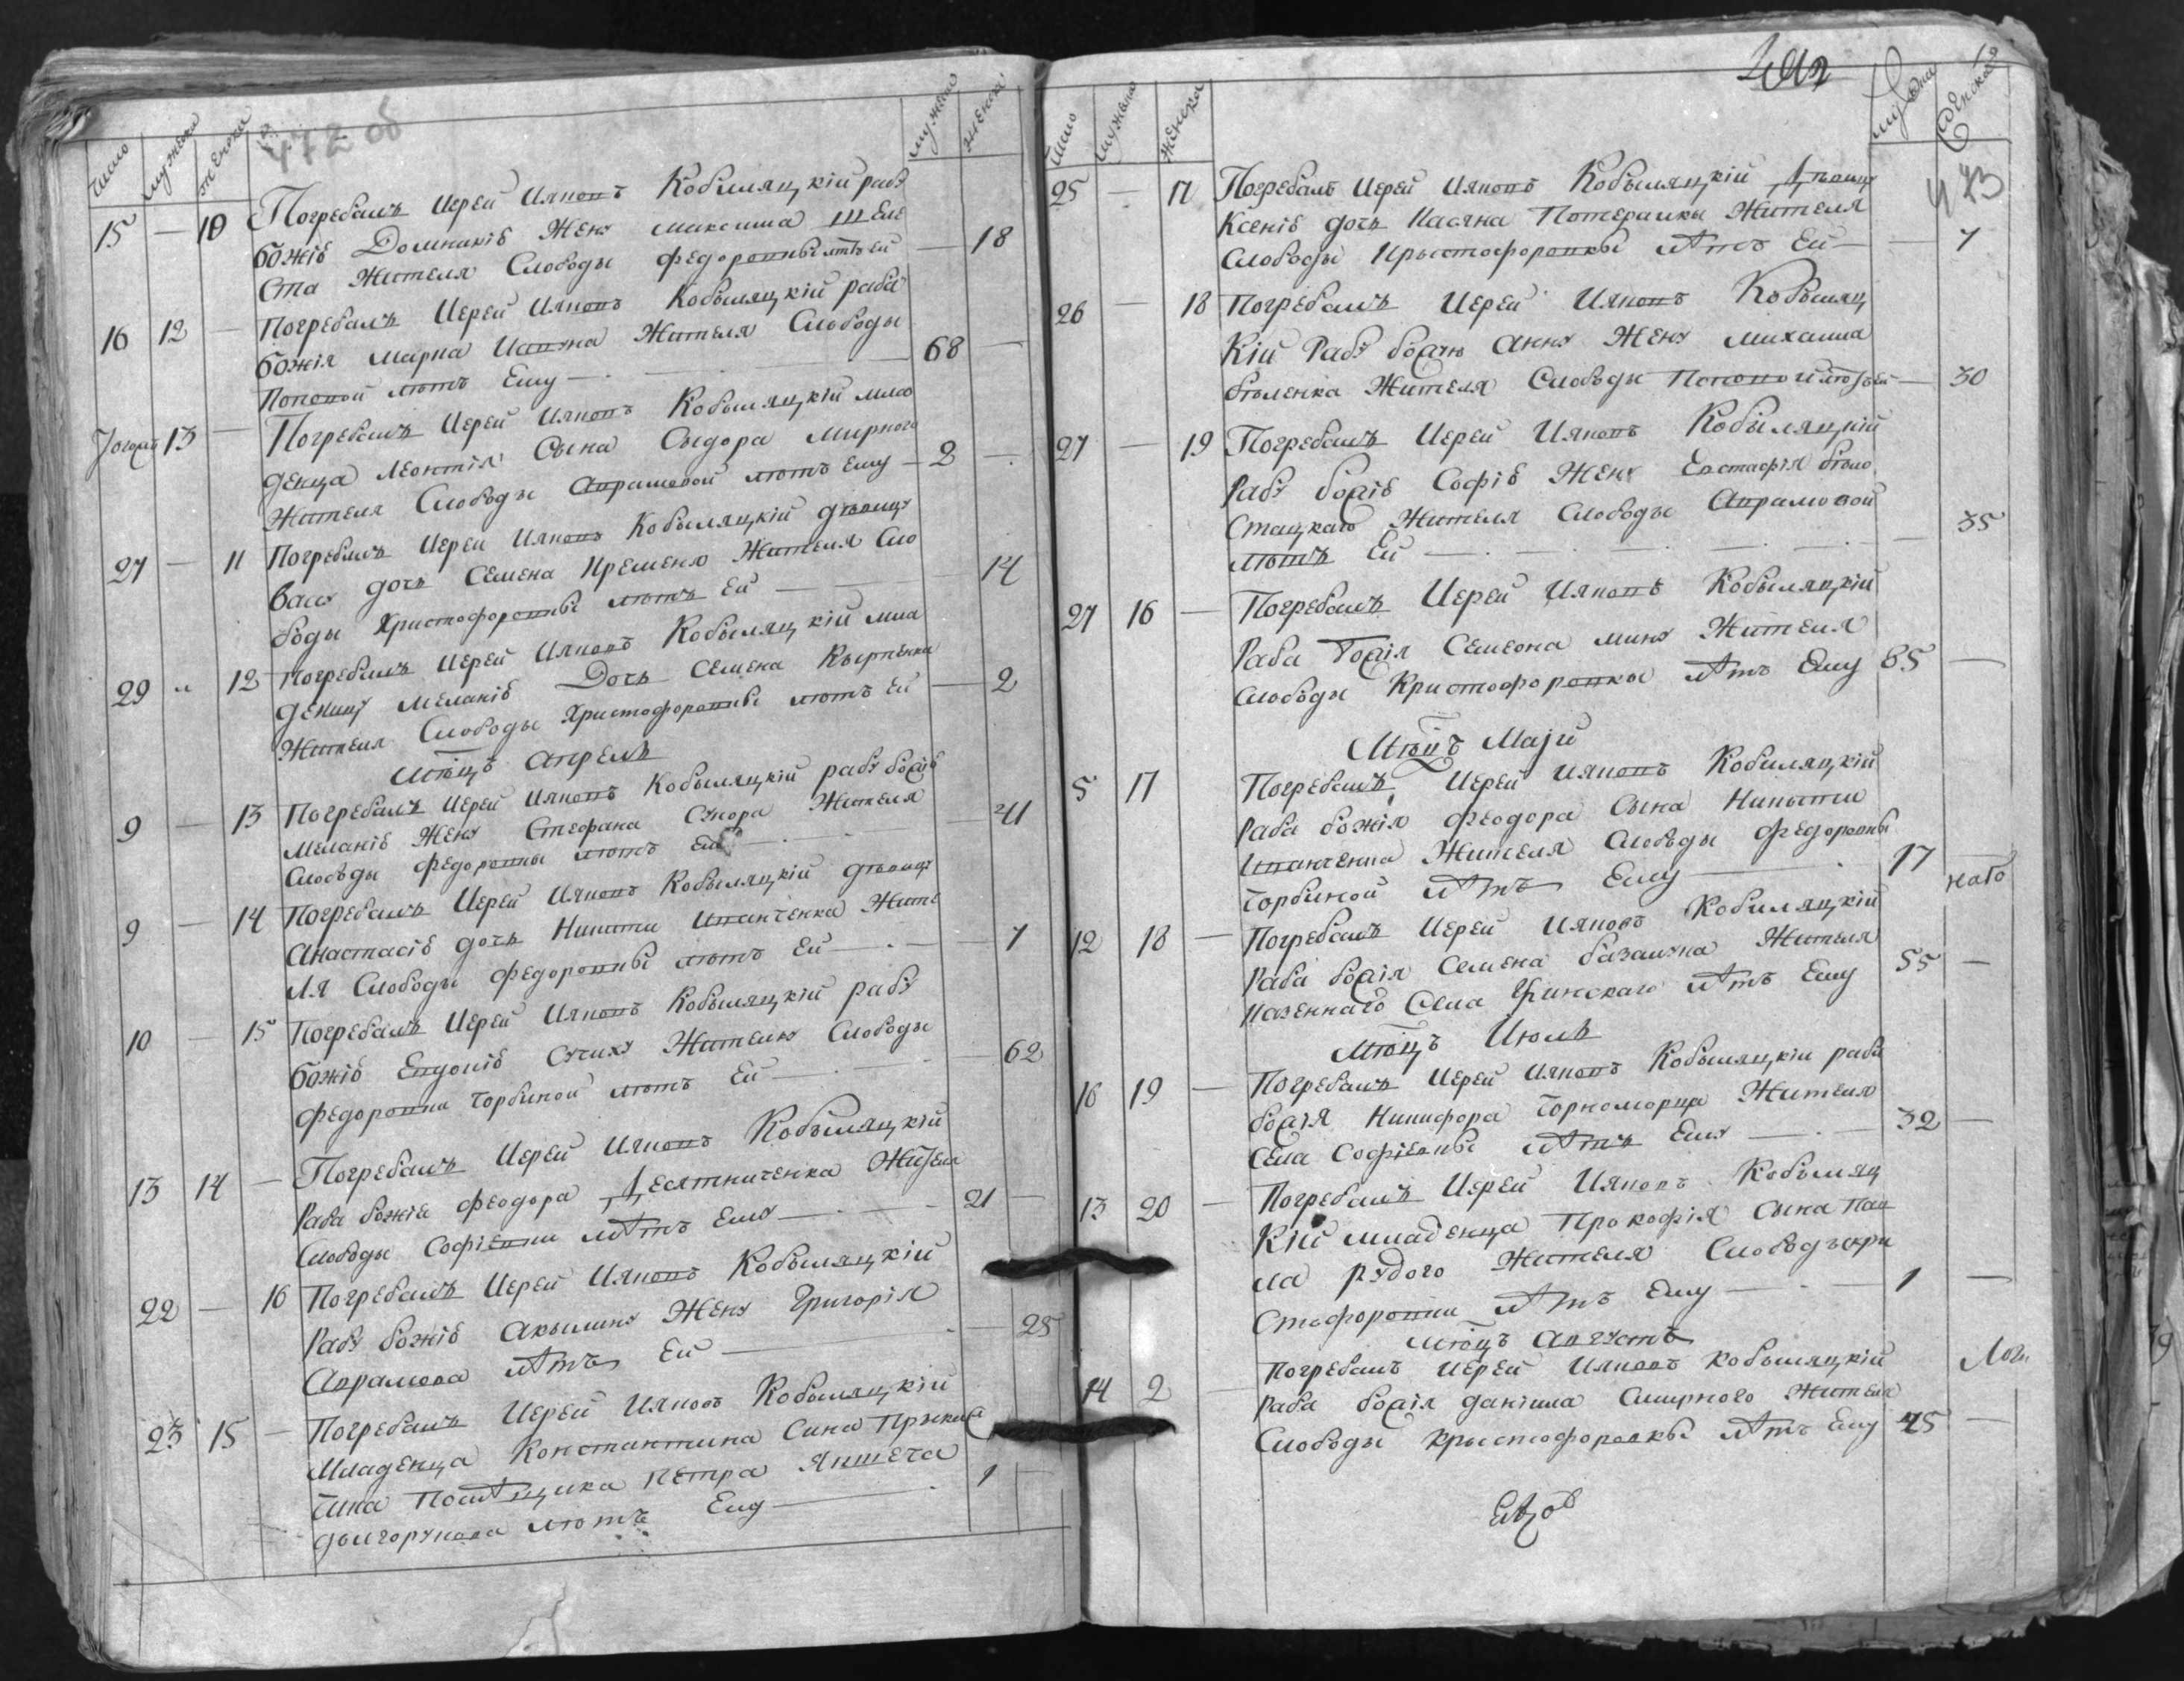 472 об
число мужеска женска мужеска женска
15 — 10 Погребалъ Иерей Ияковъ Кобиляцкій рабу
божіѣ Домникіѣ Жену максима Шеле
ста Жителя Слободы федоровки лѣтъ ей — 18
16 12 — Погребалъ Иерей Ияковъ Кобиляцкій раба
божія Марка Жителя Слободы
Поповой лѣтъ Ему — 68 —
Тогожъ 13 — Погребалъ Иерей Ияковъ Кобиляцкій мла
денца Леонтія Сына Сыдора Мирного
Жителя Слободы Аврамовой лѣтъ ему — 2 —
27 — 11 Погребалъ Иерей Ияковъ Кобиляцкій дѣвицу
Васу дочь Семена Кременя Жителя Сло
боды Христофоровки лѣтъ Ей — 14
29 " 12 Погребалъ Иерей Ияковъ Кобиляцкій мла
денцу Меланіѣ Дочь Семена Кырпенка
Жителя Слободы Христофоровки лѣтъ Ей — 2
Мѣцъ Апрель
9 — 13 Погребалъ Иерей Ияковъ Кобиляцкій рабу божіѣ
Меланіѣ Жену Стефана Скора Жителя
Слободы федоровки лѣтъ Ей — 41
9 — 14 Погребалъ Иерей Ияковъ Кобиляцкій дѣвицу
Анастасіѣ дочь Никиты Иванченка Жите
ля Слободы федоровки лѣтъ Ей — 7
10 — 15 Погребалъ Иерей Ияковъ Кобиляцкій рабу
божіѣ Евдокіѣ Сучиху Жителку Слободы
федоровки Торбиной лѣтъ Ей — 62
13 14 — Погребалъ Иерей Ияковъ Кобиляцкій
Раба божія феодора Десятниченка Жителя
Слободы Софіевки лѣтъ Ему — 21 —
22 — 16 Погребалъ Иерей Ияковъ Кобиляцкій
Рабу божіѣ Акылину Жену Григорія
Аврамова лѣтъ Ей — 25
23 15 — Погребалъ Иерей Ияковъ Кобиляцкій
Младенца Константина Сина
Помѣщика Петра
долгорукова лѣтъ Ему — 1 —
число мужеска женска мужеска женска
473
25 — 17 Погребалъ Иерей Ияковъ Кобыляцкій Дѣвицу
Ксеніѣ дочь Касяна Потерайки Жителя
Слободы Крыстофоровки лѣтъ Ей — 7
26 — 18 Погребалъ Иерей Ияковъ Кобыляц
Кій Рабу божію Анну Жену михаила
бѣленка Жителя Слободы Поповой лѣтъ Ей — 30
27 — 19 Погребалъ Иерей Ияковъ Кобіляцкій
Рабу божіѣ Софіѣ Жену Евстафія бѣло
Стацкаго Жителя Слободы Аврамовой
лѣтъ Ей — 35
27 16 — Погребалъ Иерей Ияковъ Кобыляцкій
Раба Божія Семеона Жителя
Слободы Кристофоровки лѣтъ Ему 65 —
Мѣцъ Маји
5 17 Погребалъ Иерей Ияковъ Кобиляцкій
Раба божія феодора Сына Никыты
Иванченка Жителя Слободы федоровки
Торбиной лѣтъ Ему — 17
12 18 — Погребалъ Иерей Ияковъ Кобиляцкій
Раба божія Семена Жителя
Казеннаго Села лѣтъ Ему 55 —
Мѣцъ Июль
16 19 — Погребалъ Иерей Ияковъ Кобыляцкій раба
божія Никифора Чорноморца Жителя
Села Софіевки лѣтъ Ему — 32 —
13 20 — Погребалъ Иерей Ияковъ Кобыляц
Кій младенца Прокофія Сына Пав
ла Рудого Жителя Слободы кри
стофоровки лѣтъ Ему — 1 —
мѣцъ Августъ
14 2 Погребалъ Иерей Ияковъ Кобыляцкій
Раба божія даніила Смирного Жителя
Слободы крыстофоровкы лѣтъ Ему 45 —